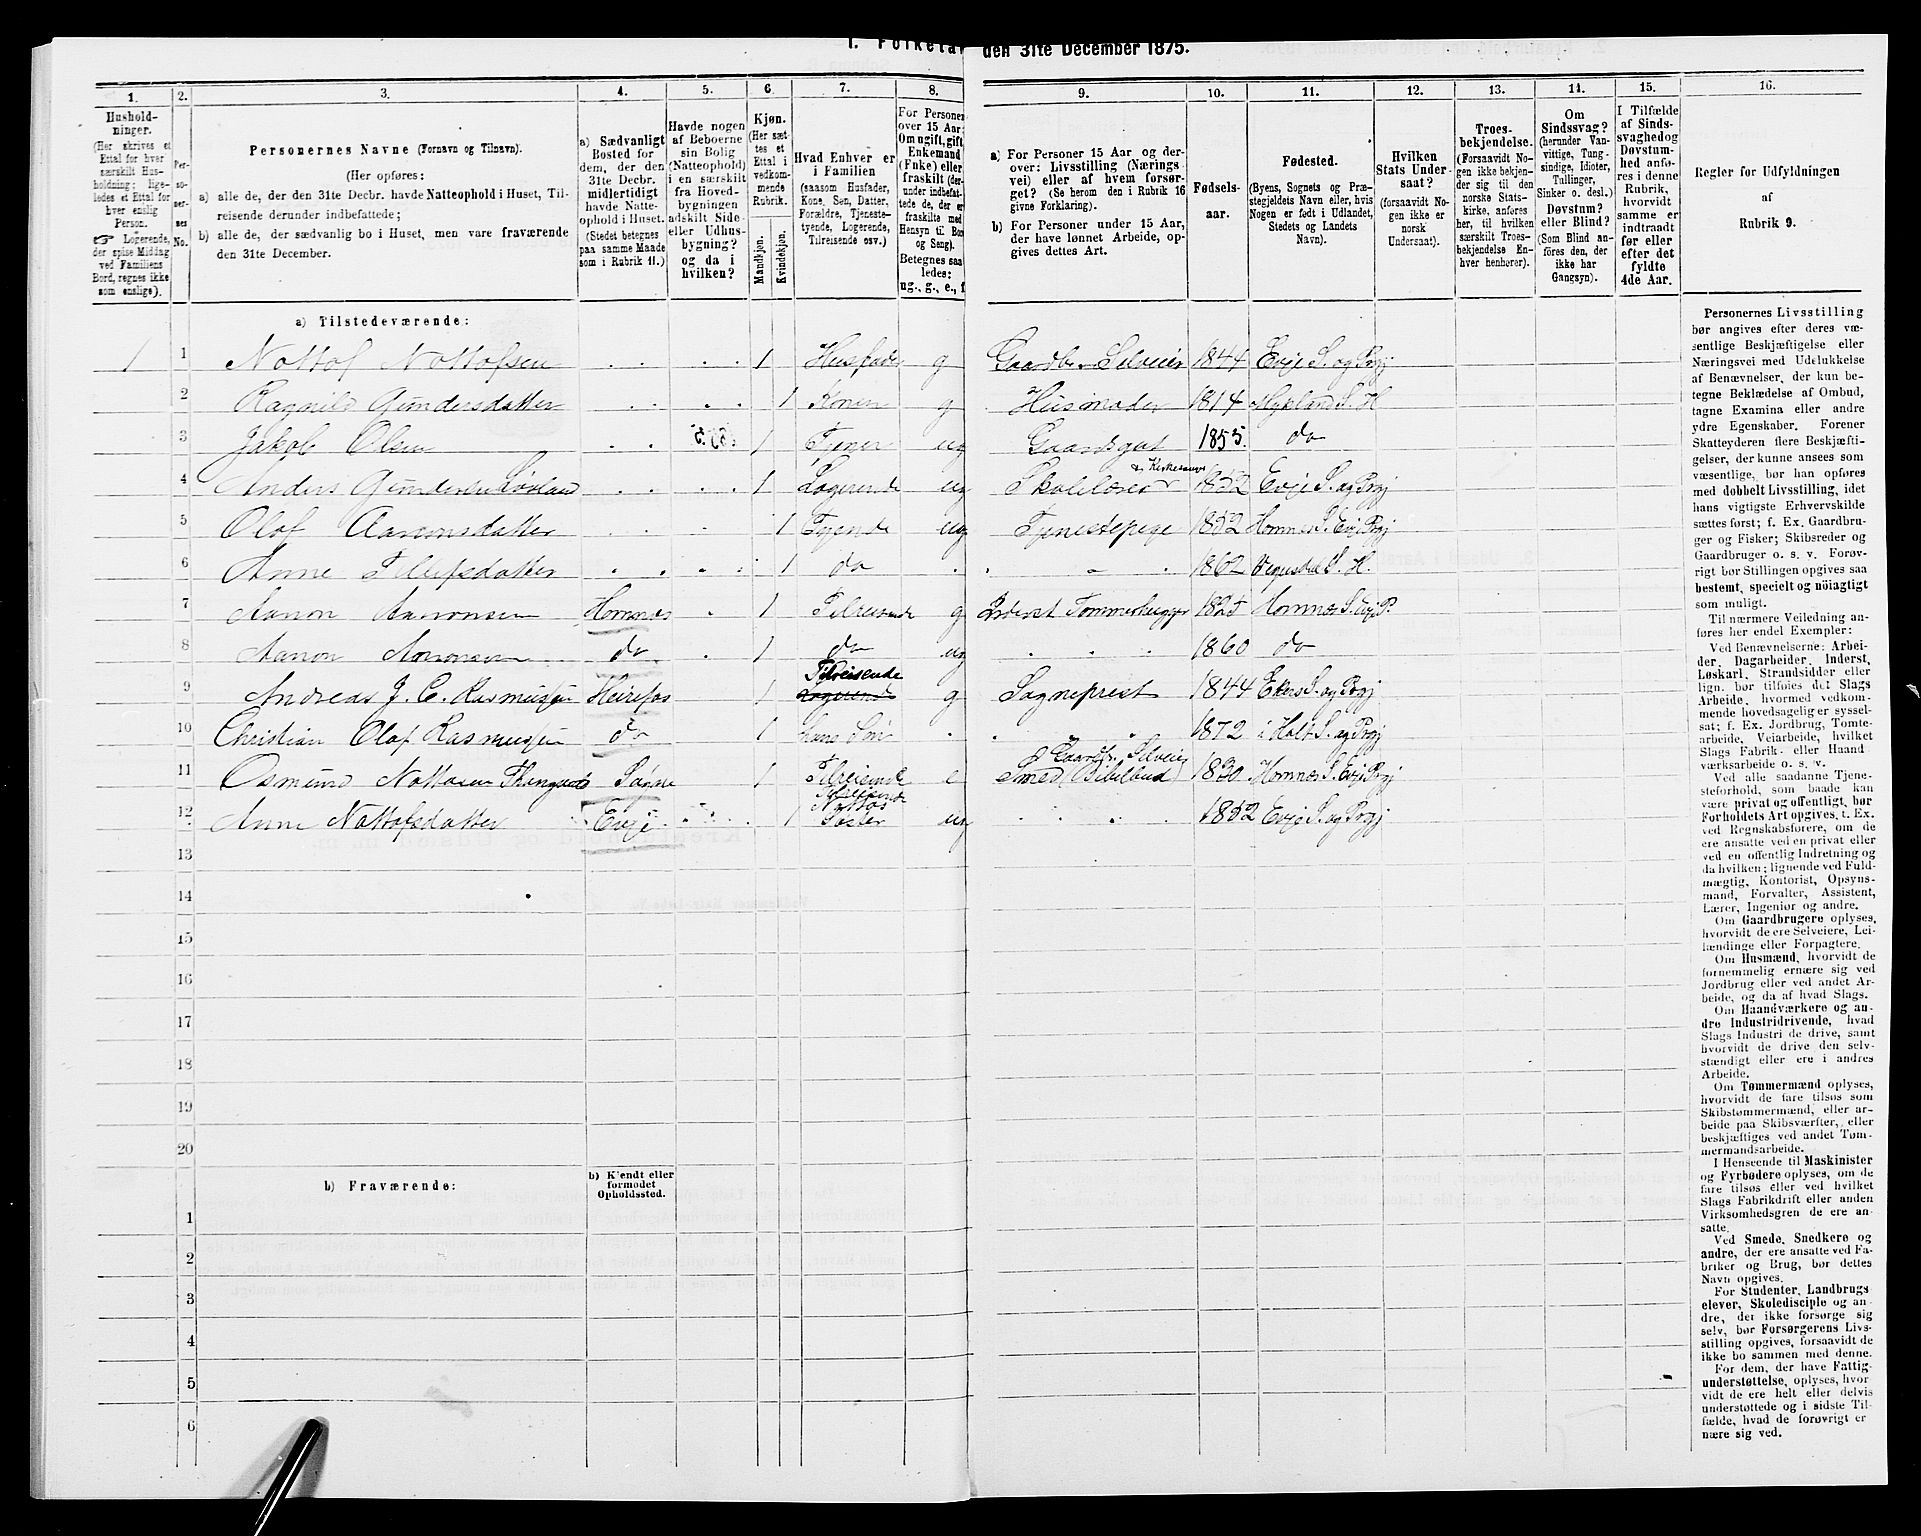 I. Folketal den 31te December 1875.
1.
Hushold-
ninger.
(Her skrives et
Ettal for hver
særskilt Hus-
holdning; lige-
ledes et Ettal for
hver enslig
Person.
☞ Logerende,
der spise Middag
ved Familiens
Bord, regnes ikke
som enslige).
2.
Per-
so-
ner-
nes
No.
3.
Personernes Navne (Fornavn og Tilnavn).
(Her opføres:
a) alle de, der den 31te Decbr. havde Natteophold i Huset, Til-
reisende derunder indbefattede;
b) alle de, der sædvanlig bo i Huset, men vare fraværende
den 31te December.
4.
a) Sædvanligt
Bosted for
dem, der den
31te Decbr.
midlertidigt
havde Natte-
ophold i Huset.
(Stedet betegnes
paa samme Maade
som i Rubrik 11.)
5.
Havde nogen
af Beboerne
sin Bolig
(Natteophold)
i en særskilt
fra Hoved-
bygningen
adskilt Side-
eller Udhus-
bygning?
og da i
hvilken?
6.
Kjøn.
(Her sæt-
tes et
Ettal i
vedkom-
mende
Rubrik.
Mandkjøn.
Kvindekjøn.
7.
Hvad Enhver er
i Familien
(saasom Husfader,
Kone, Søn, Datter,
Forældre, Tjeneste-
tyende, Logerende,
Tilreisende osv.)
8.
For Personer
over 15 Aar:
Om ugift, gift,
Enkemand
(Enke) eller
fraskilt (der-
under indbefat-
tede de, der ere
fraskilte med
Hensyn til Bord
og Seng).
Betegnes saa-
ledes:
ug., g., e., f.
9.
a) For Personer 15 Aar og der-
over: Livsstilling (Nærings-
vei) eller af hvem forsør-
get? (Se herom den i Rubrik 16
givne Forklaring).
b) For Personer under 15 Aar,
der have lønnet Arbeide, op-
gives dettes Art.
10.
Fødsels-
aar.
11.
Fødested.
(Byens, Sognets og Præ-
stegjeldets Navn eller, hvis
Nogen er født i Udlandet,
Stedets og Landets
Navn).
12.
Hvilken
Stats Under-
saat?
(forsaavidt No-
gen ikke er
norsk
Undersaat).
13.
Troes-
bekjendelse.
(Forsaavidt No-
gen ikke bekjen-
der sig til den
norske Stats-
kirke, anføres
her, til hvilken
særskilt Troes-
bekjendelse En-
hver henhører).
14.
Om
Sindssvag?
(herunder Van-
vittige, Tung-
sindige, Idioter,
Tullinger,
Sinker o. desl.)
Døvstum?
eller Blind?
(Som Blind an-
føres den, der
ikke har
Gangsyn).
15.
I Tilfælde
af Sinds-
svaghed og
Døvstum-
hed anfø-
res i denne
Rubrik,
hvorvidt
samme er
indtraadt
før eller
efter det
fyldte
4de Aar.
16.
Regler for Udfyldningen
af
Rubrik 9.
a) Tilstedeværende:
1 1 Nottof Nottofsen 1 Husfader g Gaardbr. Selveier 1844 Evje S. og Prgj
2 Ragnild Gundersdatter 1 Konen g Husmoder 1814 Hykland S. H
3 Jakob Olsen 1 Tjener ug Gaardsgut 1855. do
4 Anders Gundersen 1 Logerende ug Skolelærer & Kirkesanger 1852 Evje S. og Prgj
5 Olaf Aanonsdatter 1 Tyende ug Tjenestepige 1852 Hornnes S. Evje Prgj
6 Anne Tilefsdatter 1 do 1862 Vegusdal S. H.
7 Aanon Aanonsen Hornnæs 1 Tilreisende g Tømmerhugger 1825 Hornnes S. Evje P.
8 Aanon Aanonsen do 1 do ug 1860 do
9 Andreas J. C. Rasmussen Heirefos 1 Tilreisende g Sogneprest 1844 Ekers S. og Prgj
10 Christian Olaf Rasmussen do 1 hans Søn 1872 i Holt S. og Prgj
11 Osmund Nottosen Sogne 1 Tilreisende e Gaardbr. Selveier & Smed (Bibelbud) 1830 Hornnes S. Evje Prgj
12 Anne Nottofsdatter Evje 1 Tilreisende Nottos Søster ug 1852 Evje S. og Prgj
13
14
15
16
17
18
19
20
b) Fraværende:
b) Kjendt eller
formodet
Opholdssted.
1
2
3
4
5
6
Personernes Livsstilling
bør angives efter deres væ-
sentlige Beskjæftigelse eller
Næringsvei med Udelukkelse
af Benævnelser, der kun be-
tegne Beklædelse af Ombud,
tagne Examina eller andre
ydre Egenskaber. Forener
Skatteyderen flere Beskjæfti-
gelser, der kunne ansees som
væsentlige, bør han opføres
med dobbelt Livsstilling, idet
hans vigtigste Erhvervskilde
sættes først; f. Ex. Gaardbru-
ger og Fisker; Skibsreder og
Gaardbruger o. s. v. Forøv-
rigt bør Stillingen opgives saa
bestemt, specielt og nöiagtigt
som muligt.
Til nærmere Veiledning an-
føres her endel Exempler:
Ved Benævnelserne: Arbei-
der, Dagarbeider, Inderst,
Løskarl, Strandsidder eller
lign. bør tilføies det Slags
Arbeide, hvormed vedkom-
mende hovedsagelig er syssel-
sat; f. Ex. Jordbrug, Tomte-
arbeide, Veiarbeide, hvilket
Slags Fabrik- eller Haand-
værksarbeide o. s. v.
Ved alle saadanne Tjene-
steforhold, som baade kan
være privat og offentligt, bør
Forholdets Art opgives, t. Ex.
ved Regnskabsførere, om de
ere ansatte ved en privat eller
ved en offentlig Indretning og
da hvilken; lignende ved Fuld-
mægtig, Kontorist, Opsyns-
mand, Forvalter, Assistent,
Lærer, Ingeniør og andre.
Om Gaardbrugere oplyses,
hvorvidt de ere Selveiere, Lei-
lændinge eller Forpagtere.
Om Husmænd, hvorvidt de
fornemmelig ernære sig ved
Jordbrug eller ved andet Ar-
beide, og da af hvad Slags.
Om Haandværkere og an-
dre Industridrivende, hvad
Slags Industri de drive, samt
hvorvidt de drive den selv-
stændigt eller ere i andres
Arbeide.
Om Tømmermænd oplyses,
hvorvidt de fare tilsøs som
Skibstømmermænd, eller ar-
beide paa Skibsværfter, eller
beskjæftiges ved andet Tøm-
mermandsarbeide.
I Henseende til Maskinister
og Fyrbødere oplyses, om de
fare tilsøs eller ved hvilket
Slags Fabrikdrift eller anden
Virksomhedsgren de ere an-
satte.
Ved Smede, Snedkere og
andre, der ere ansatte ved Fa-
briker og Brug, bør dettes
Navn opgives.
For Studenter, Landbrugs-
elever, Skoledisciple og an-
dre, der ikke forsørge sig
selv, bør Forsørgerens Livs-
stilling opgives, forsaavidt de
ikke bo sammen med denne.
For dem, der have Fattig-
understøttelse, oplyses, hvor-
vidt de ere helt eller delvis
understøttede og i sidste Til-
fælde, hvad de forøvrigt er
nære sig ved.